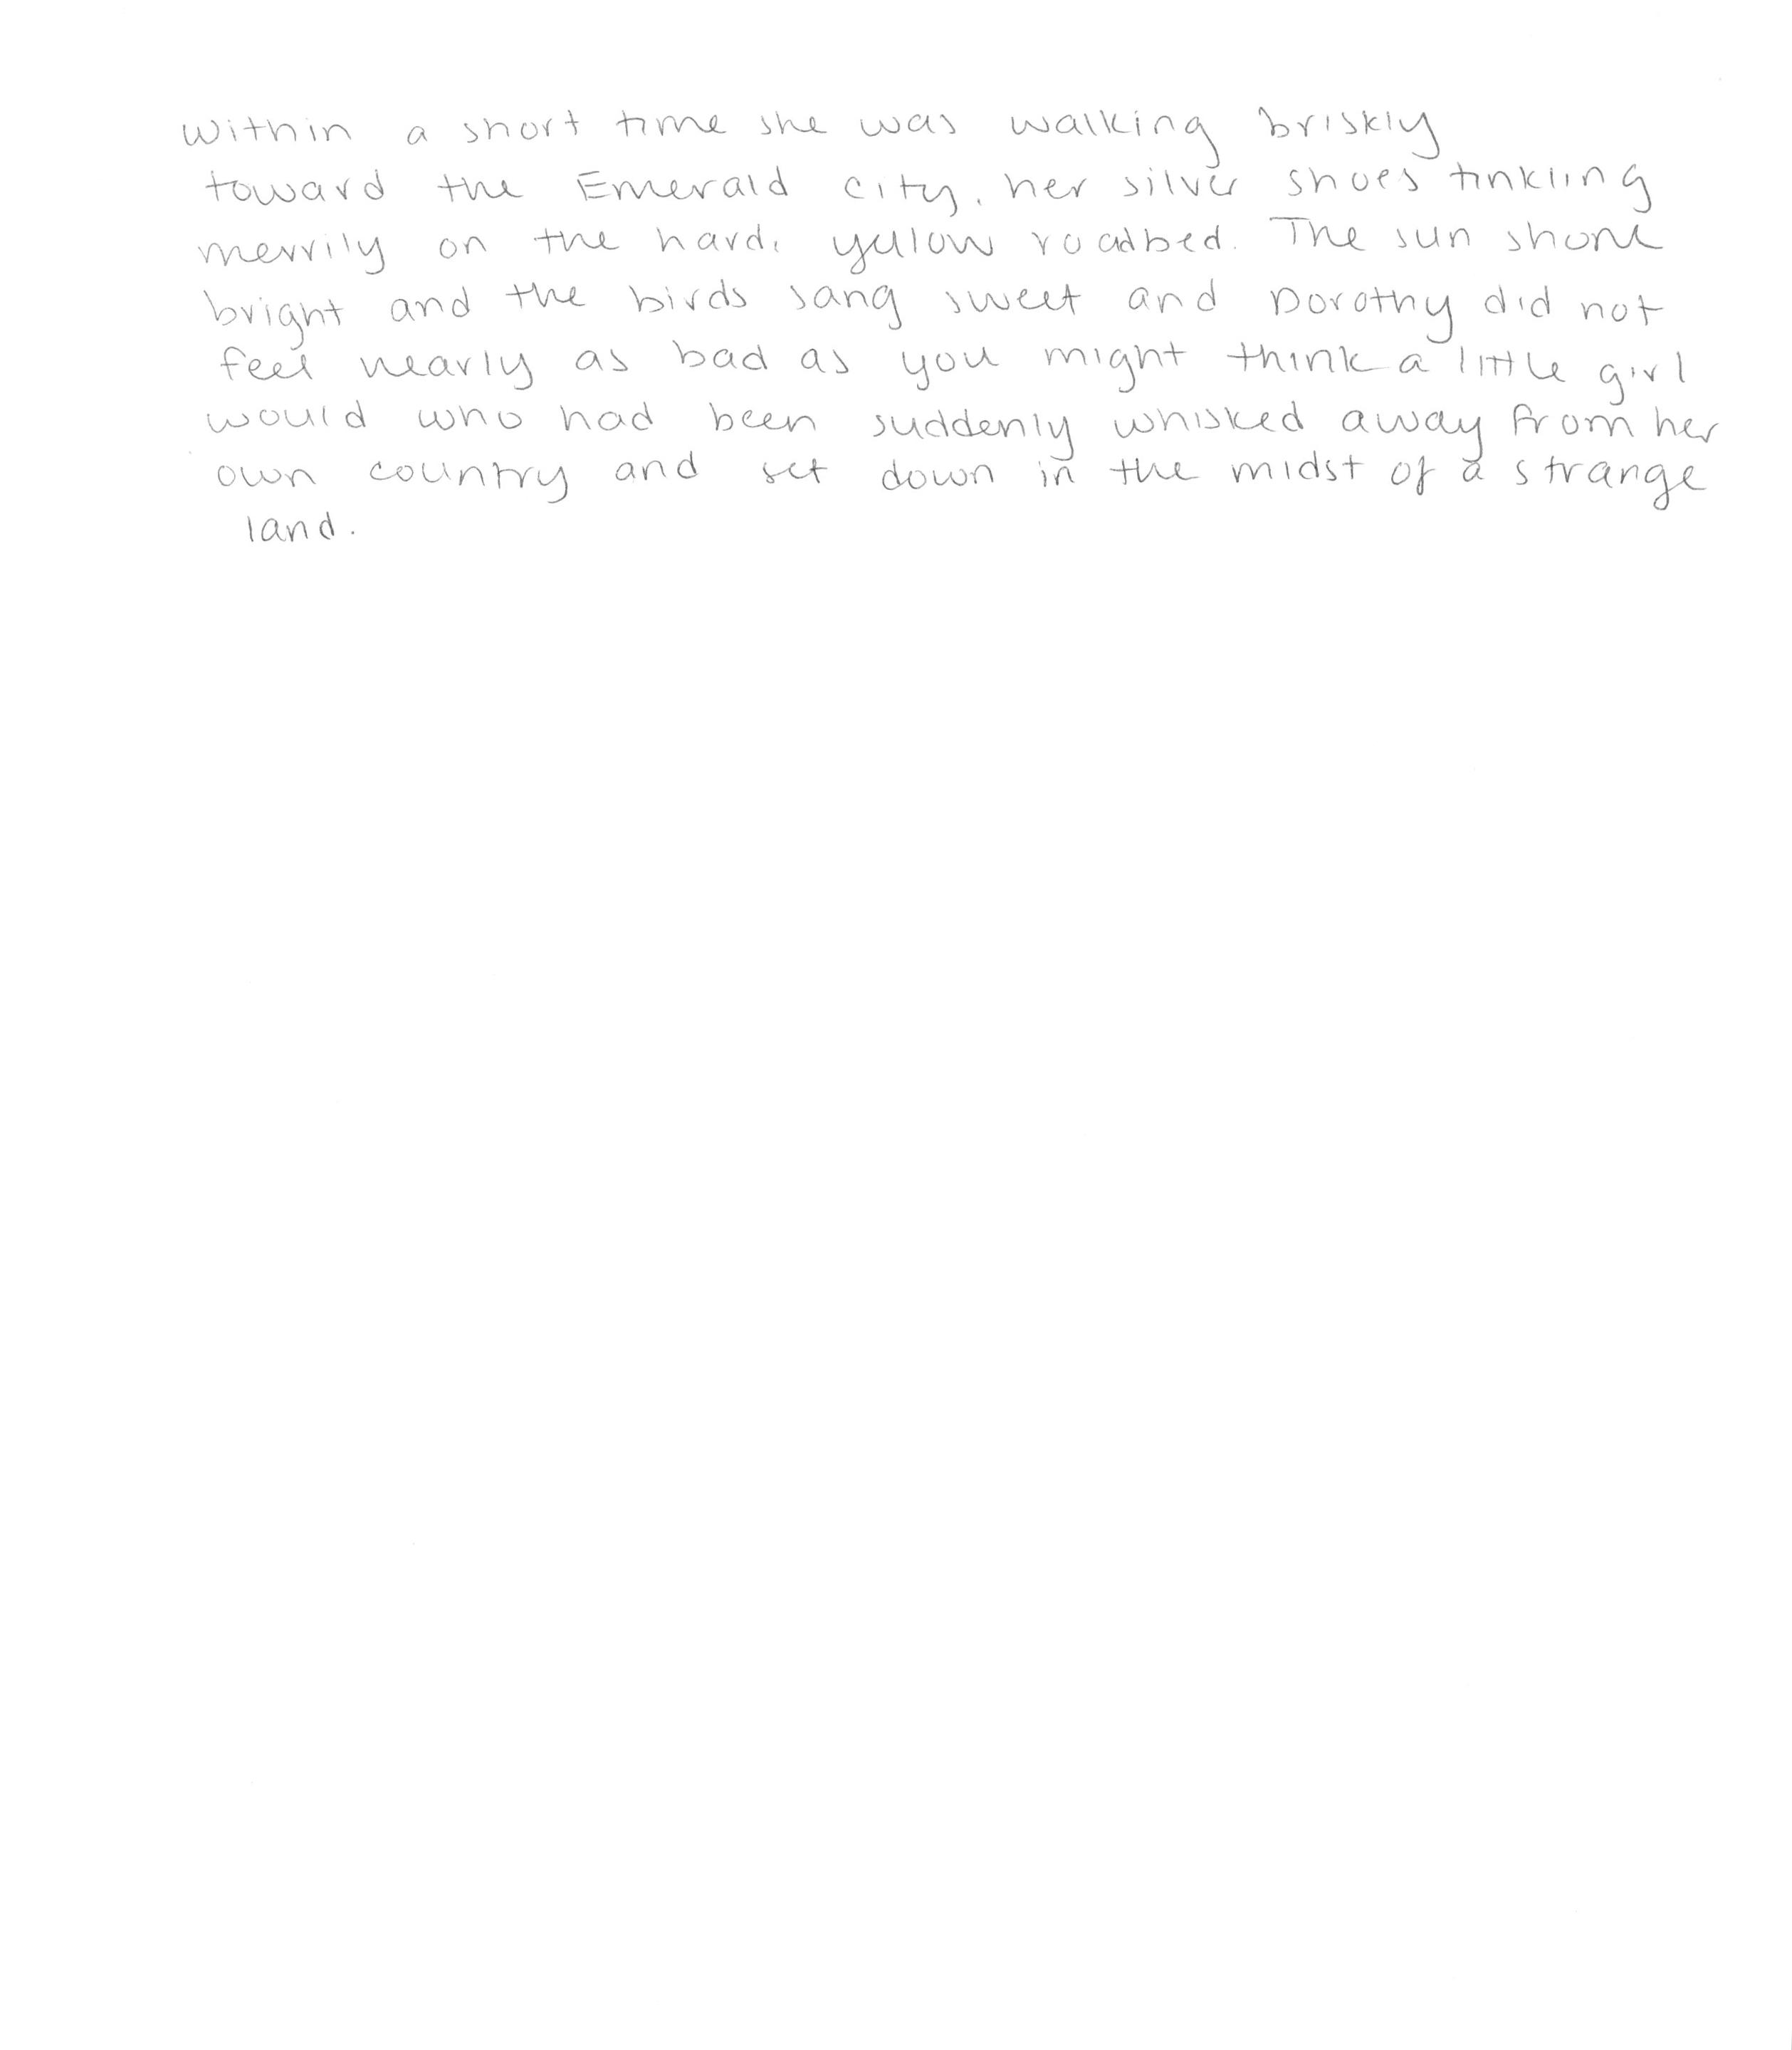 Within a short time she was walking briskly
toward the Emerald city, her silver shoes tinkling
merrily on the hard, yellow roadbed. The sun shone
bright and the birds sang sweet and Dorothy did not
feel nearly as bad as you might think a little girl
would who had been suddenly whisked away from her
own country and set down in the midst of a strange
land.